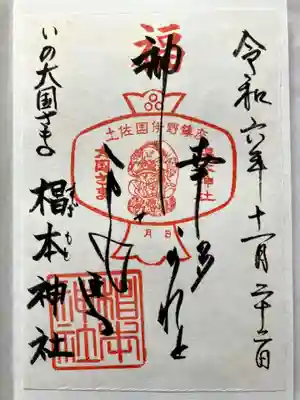 令和六年十一月二十二日
福
神
幸多かれと
土佐国伊野鎮座
大国さま
月 日
いの大国さま
椙本神社
すぎもと
椙本神社